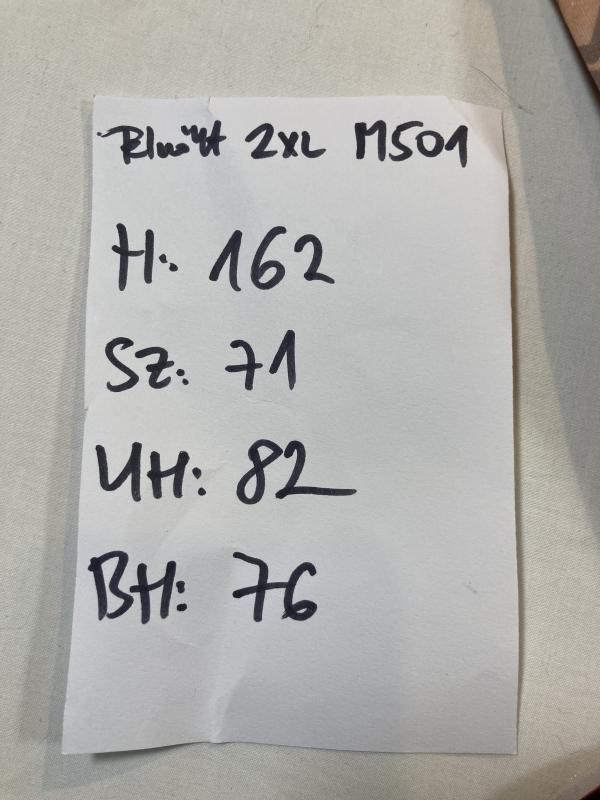 2XL M501
H: 162
SZ: 71
UH: 82
BH: 76